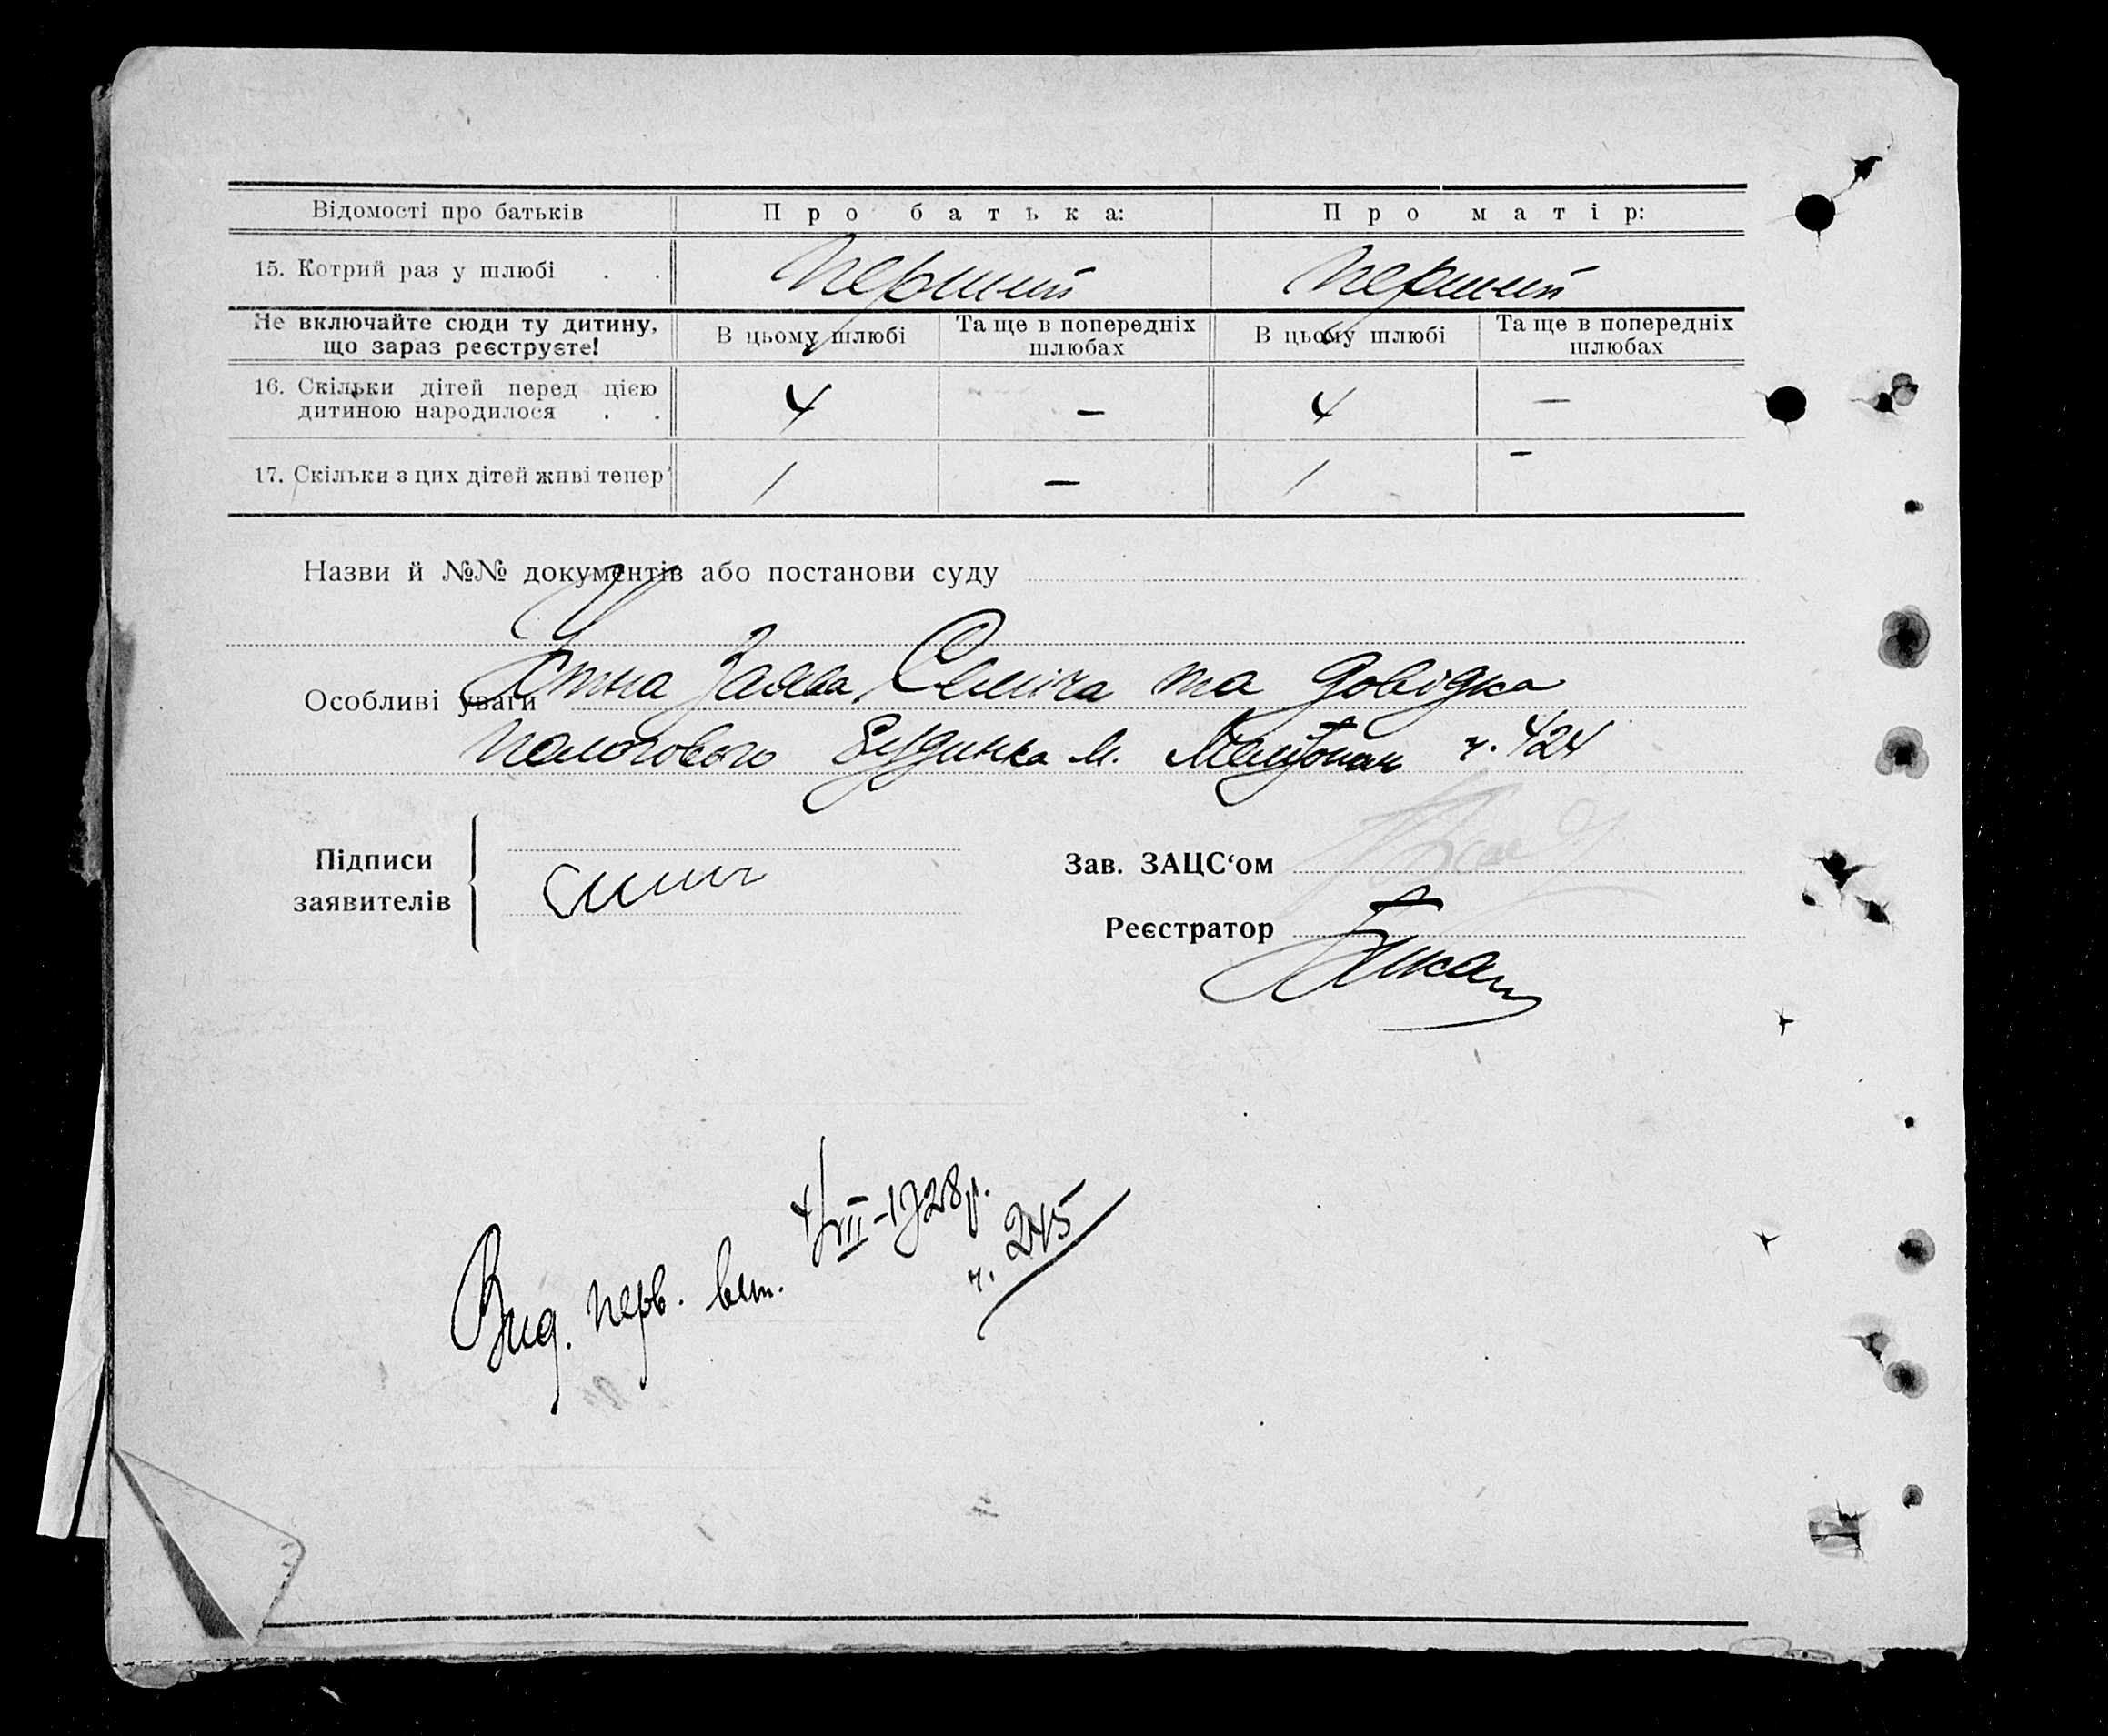 Відомості про батьків Про батька: Про матір:
15. Котрий раз у шлюбі . . перший перший
Не включайте сюди ту дитину, що зараз реєструєте! В цьому шлюбі Та ще в попередніх шлюбах В цьому шлюбі Та ще в попередніх шлюбах
16. Скільки дітей перед цією дитиною народилося . . 4 — 4 —
17. Скільки з цих дітей живі тепер 1 — 1 —
Назви й №№ документів або постанови суду
Особливі уваги Устна заява та довідка
пологового будинка м. ч. 424
Підписи заявителів
Зав. ЗАЦС‘ом
Реєстратор
Вид. перв. вип. 4/VII-1928р.
ч. 245